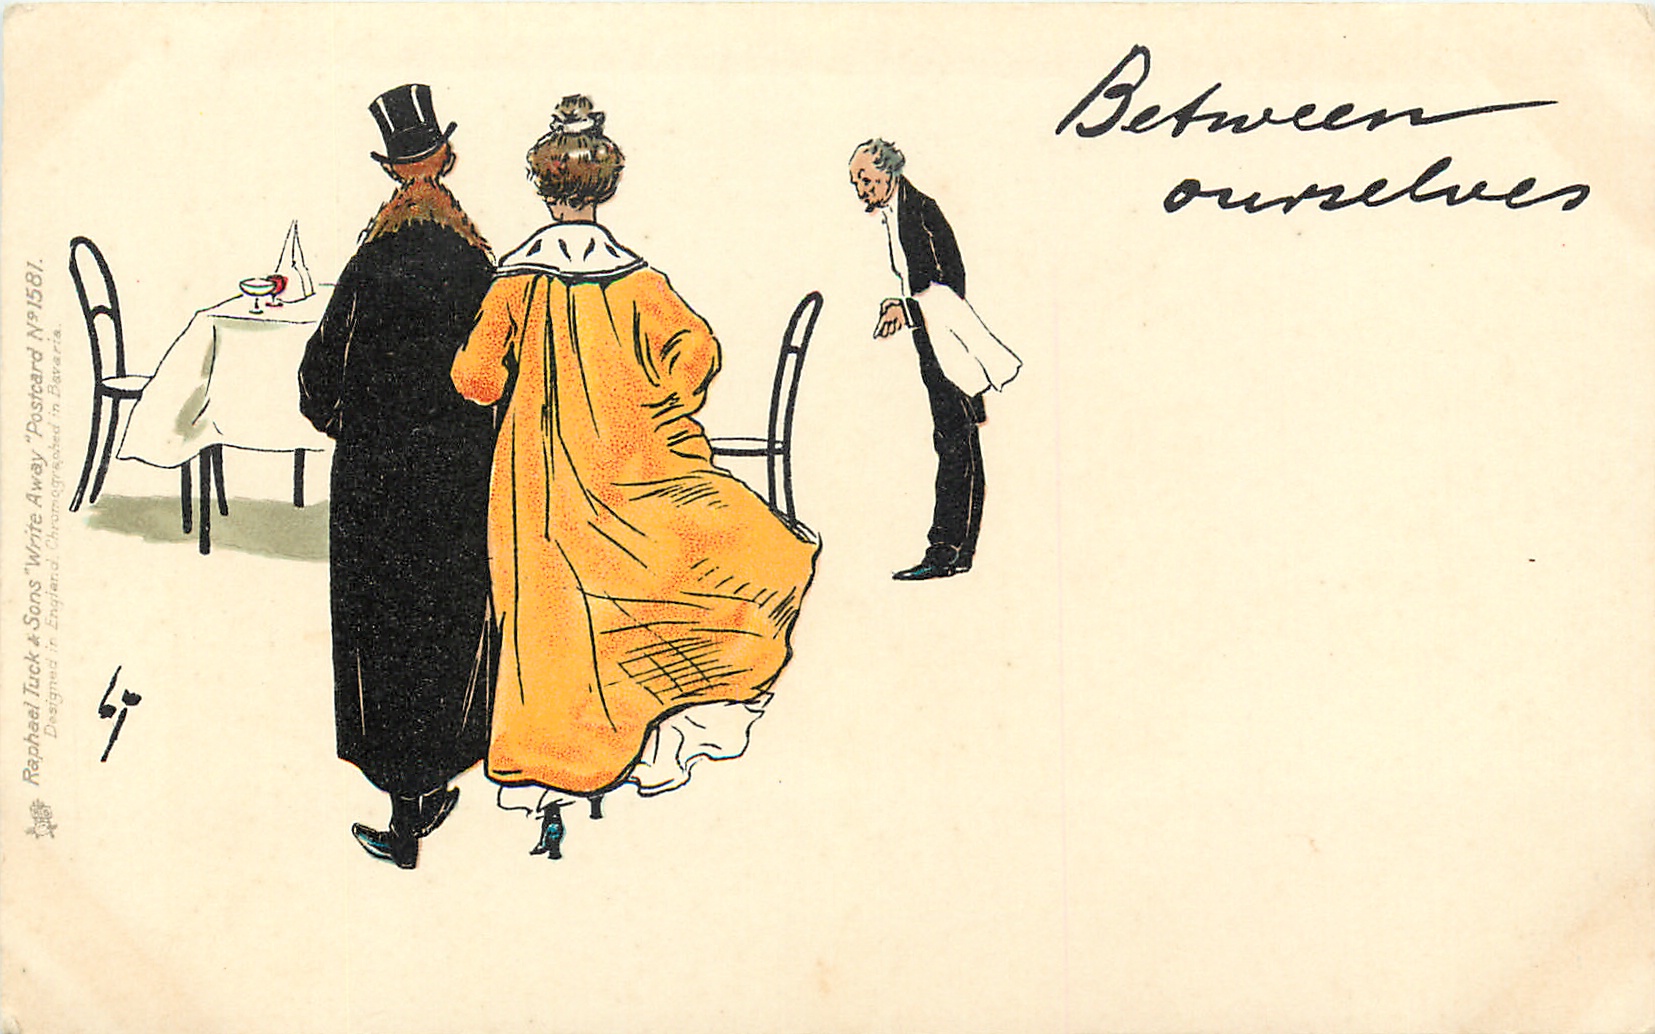 Between
ourselves
Raphael Tuck & Sons "Write Away" Postcard Nº 1581.
Designed in England, Chromographed in Bavaria.